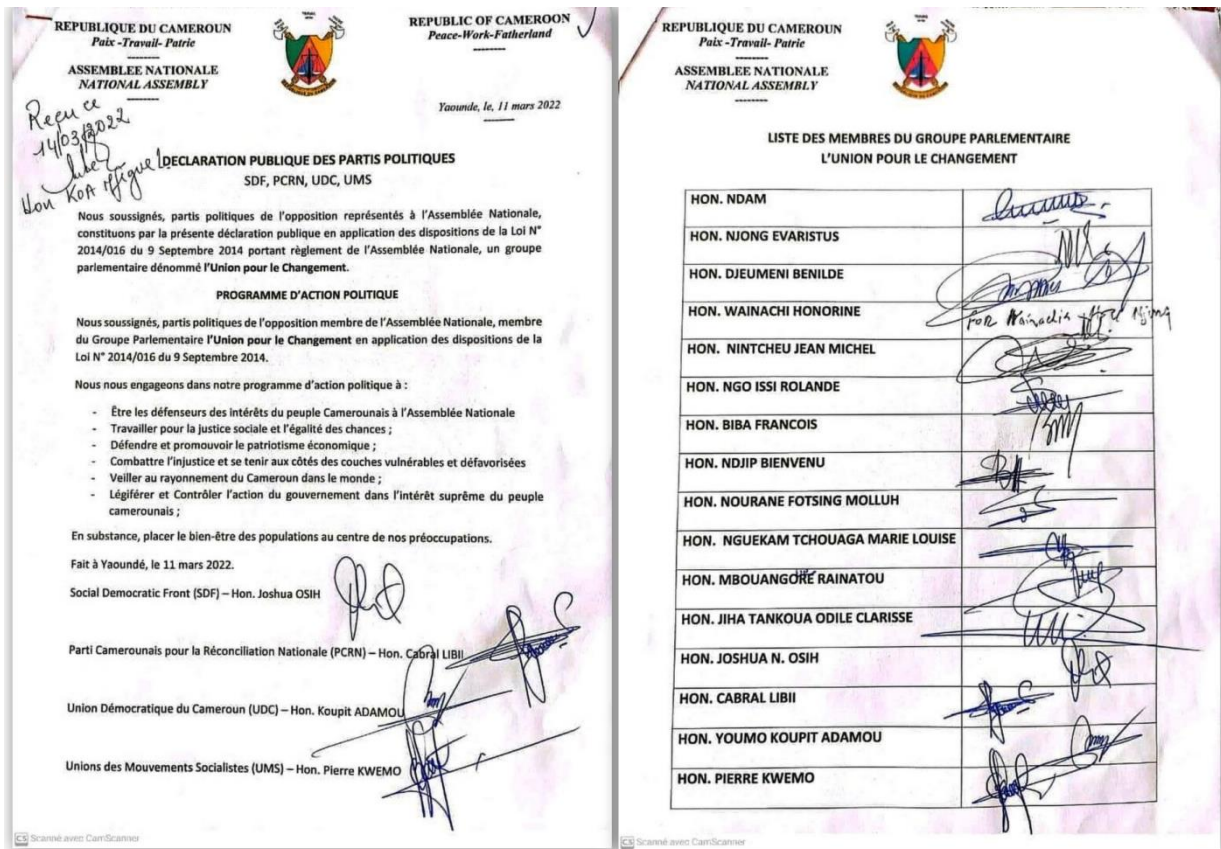 REPUBLIQUE DU CAMEROUN
Paix -Travail- Patrie
ASSEMBLEE NATIONALE
NATIONAL ASSEMBLY
REPUBLIC OF CAMEROON
Peace-Work-Fatherland
Yaounde, le, 11 mars 2022
Reçu ce
14/03/2022
Hon KOA
DECLARATION PUBLIQUE DES PARTIS POLITIQUES
SDF, PCRN, UDC, UMS
Nous soussignés, partis politiques de l'opposition représentés à l'Assemblée Nationale,
constituons par la présente déclaration publique en application des dispositions de la Loi N°
2014/016 du 9 Septembre 2014 portant règlement de l'Assemblée Nationale, un groupe
parlementaire dénommé l'Union pour le Changement.
PROGRAMME D'ACTION POLITIQUE
Nous soussignés, partis politiques de l'opposition membre de l'Assemblée Nationale, membre
du Groupe Parlementaire l'Union pour le Changement en application des dispositions de la
Loi N° 2014/016 du 9 Septembre 2014.
Nous nous engageons dans notre programme d'action politique à :
- Être les défenseurs des intérêts du peuple Camerounais à l'Assemblée Nationale
- Travailler pour la justice sociale et l'égalité des chances ;
- Défendre et promouvoir le patriotisme économique ;
- Combattre l'injustice et se tenir aux côtés des couches vulnérables et défavorisées
- Veiller au rayonnement du Cameroun dans le monde ;
- Légiférer et Contrôler l'action du gouvernement dans l'intérêt suprême du peuple
camerounais ;
En substance, placer le bien-être des populations au centre de nos préoccupations.
Fait à Yaoundé, le 11 mars 2022.
Social Democratic Front (SDF) – Hon. Joshua OSIH
Parti Camerounais pour la Réconciliation Nationale (PCRN) – Hon. Cabral LIBII
Union Démocratique du Cameroun (UDC) – Hon. Koupit ADAMOU
Unions des Mouvements Socialistes (UMS) – Hon. Pierre KWEMO
CS Scanné avec CamScanner
REPUBLIQUE DU CAMEROUN
Paix -Travail- Patrie
ASSEMBLEE NATIONALE
NATIONAL ASSEMBLY
LISTE DES MEMBRES DU GROUPE PARLEMENTAIRE
L'UNION POUR LE CHANGEMENT
HON. NDAM
HON. NJONG EVARISTUS
HON. DJEUMENI BENILDE
HON. WAINACHI HONORINE
FOR Wainachi Njong
HON. NINTCHEU JEAN MICHEL
HON. NGO ISSI ROLANDE
HON. BIBA FRANCOIS
HON. NDJIP BIENVENU
HON. NOURANE FOTSING MOLLUH
HON. NGUEKAM TCHOUAGA MARIE LOUISE
HON. MBOUANGORE RAINATOU
HON. JIHA TANKOUA ODILE CLARISSE
HON. JOSHUA N. OSIH
HON. CABRAL LIBII
HON. YOUMO KOUPIT ADAMOU
HON. PIERRE KWEMO
CS Scanné avec CamScanner